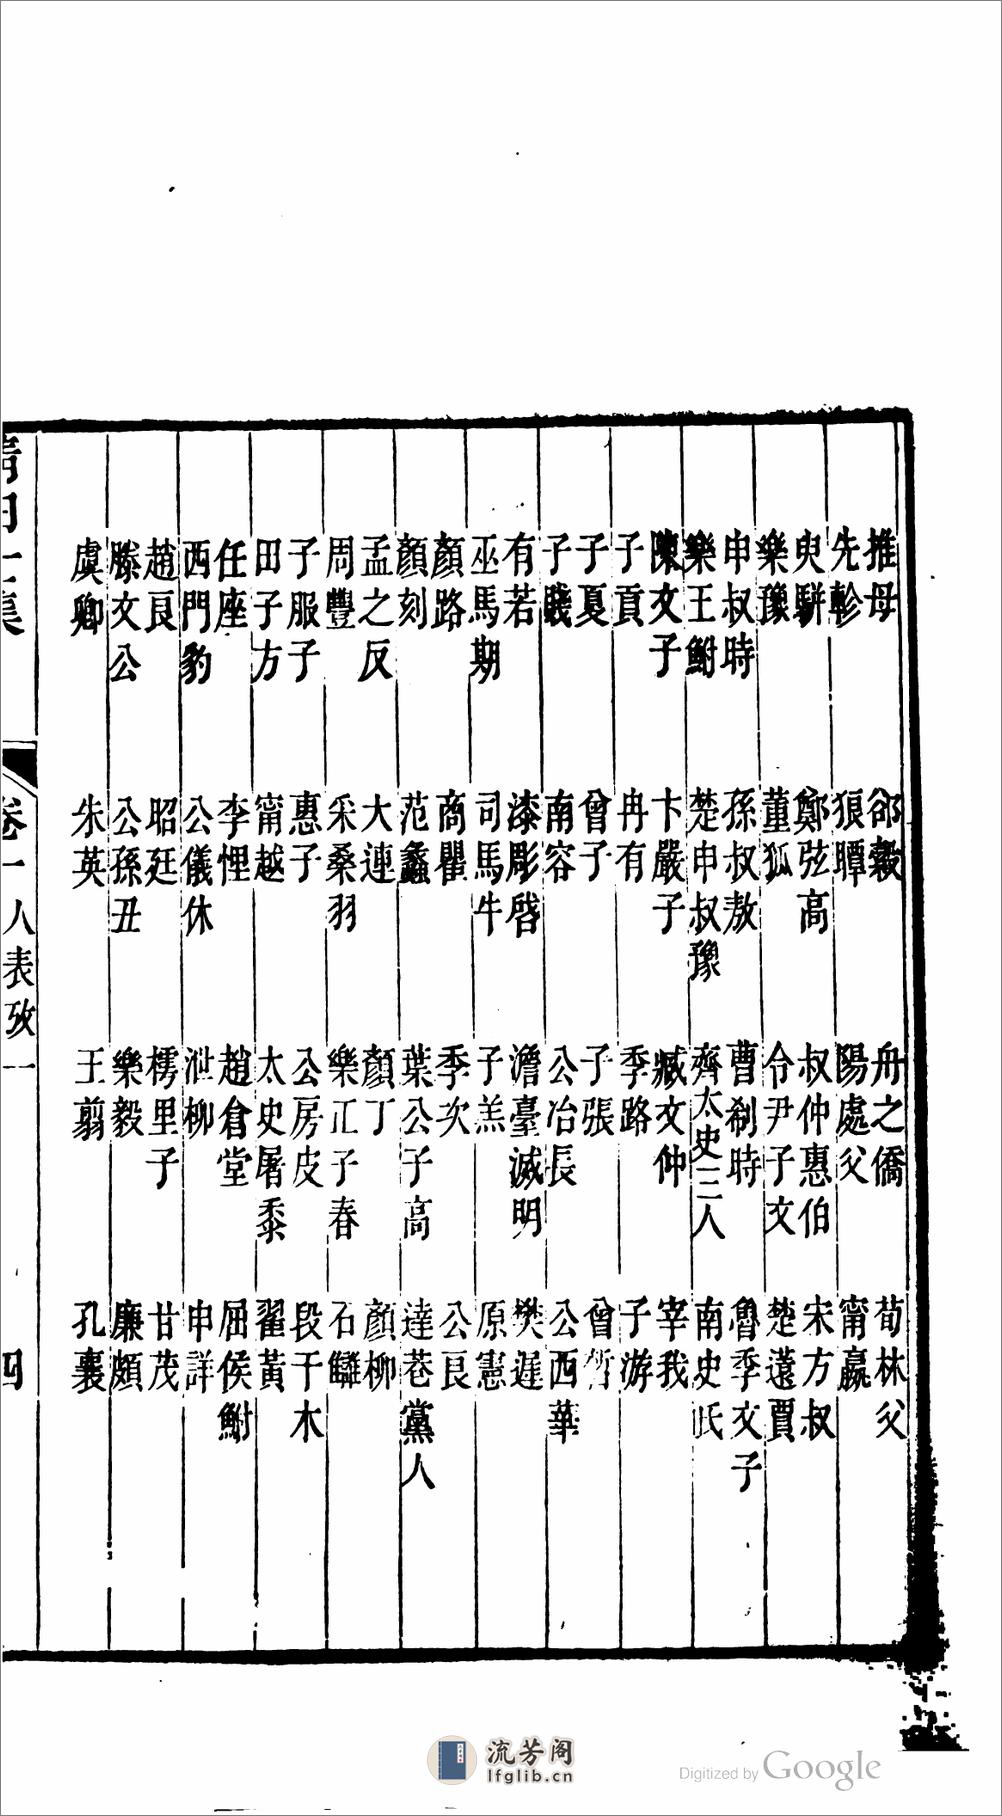 推母 郤縠 舟之僑 荀林父
先軫 狼瞫 陽處父 甯嬴
臾騈 鄭弦高 叔仲惠伯 宋方叔
樂豫 董狐 令尹子文 楚薳賈
申叔時 孫叔敖 曹刹時 魯季文子
樂王鮒 楚申叔豫 齊太史三人 南史氏
陳文子 卞嚴子 臧文仲 宰我
子貢 冉有 季路 子游
子夏 曾子 子張 曾晳
子賤 南容 公冶長 公西華
有若 漆彫啓 澹臺滅明 樊遲
巫馬期 司馬牛 子羔 原憲
顏路 商瞿 季次 公良
顏刻 范蠡 葉公子高 達巷黨人
孟之反 大連 顏丁 顏柳
周豐 采桑羽 樂正子春 石讎
子服子 惠子 公房皮 段干木
田子方 甯越 太史屠黍 翟黃
任座 李悝 趙倉堂 屈侯鮒
西門豹 公儀休 泄柳 申詳
趙良 昭廷 樗里子 甘茂
滕文公 公孫丑 樂毅 廉頗
虞卿 朱英 王翦 孔襄
卷一 人表攷一 四
流芳阁
lfglib.cn
Digitized by Google